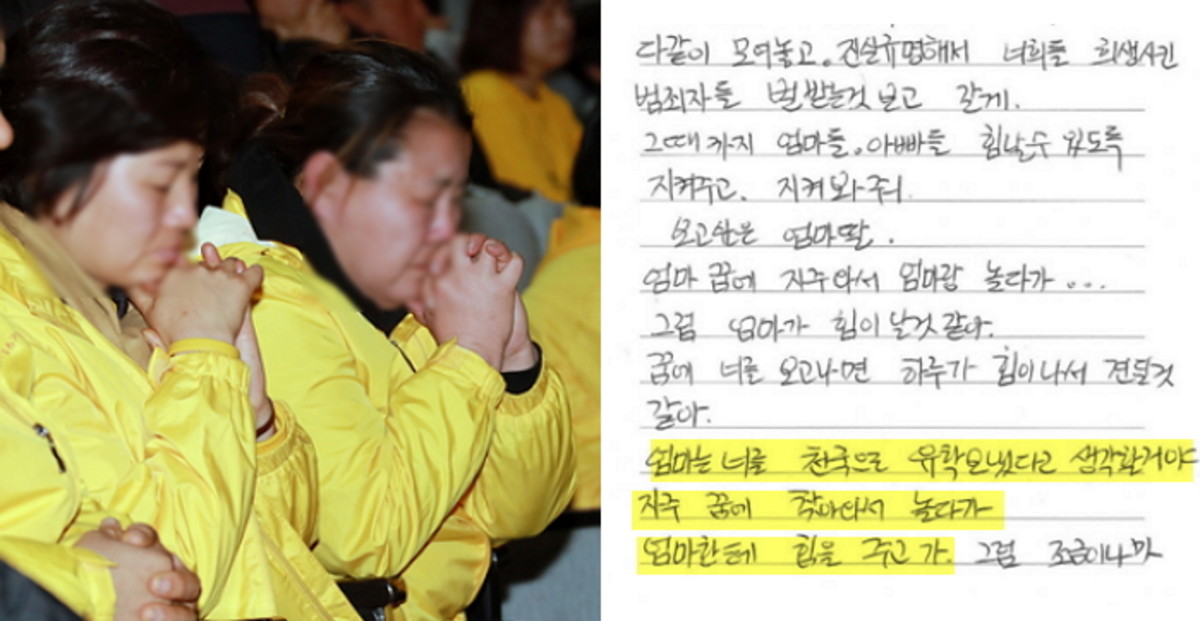 다같이 모여놓고. 진실규명해서 너희들 희생시킨
범죄자들 벌받는것 보고 갈게.
그때까지 엄마들. 아빠들 힘날수 있도록
지켜주고. 지켜봐주리.
보고싶은 엄마딸.
엄마 꿈에 자주와서 엄마랑 놀다가...
그럼 엄마가 힘이 날것 같아.
꿈에 너를 보고나면 하루가 힘이나서 견딜것
같아.
엄마는 너를 천국으로 유학보냈다고 생각할거야
자주 꿈에 찾아와서 놀다가
엄마한테 힘을 주고 가. 그럼 조금이나마